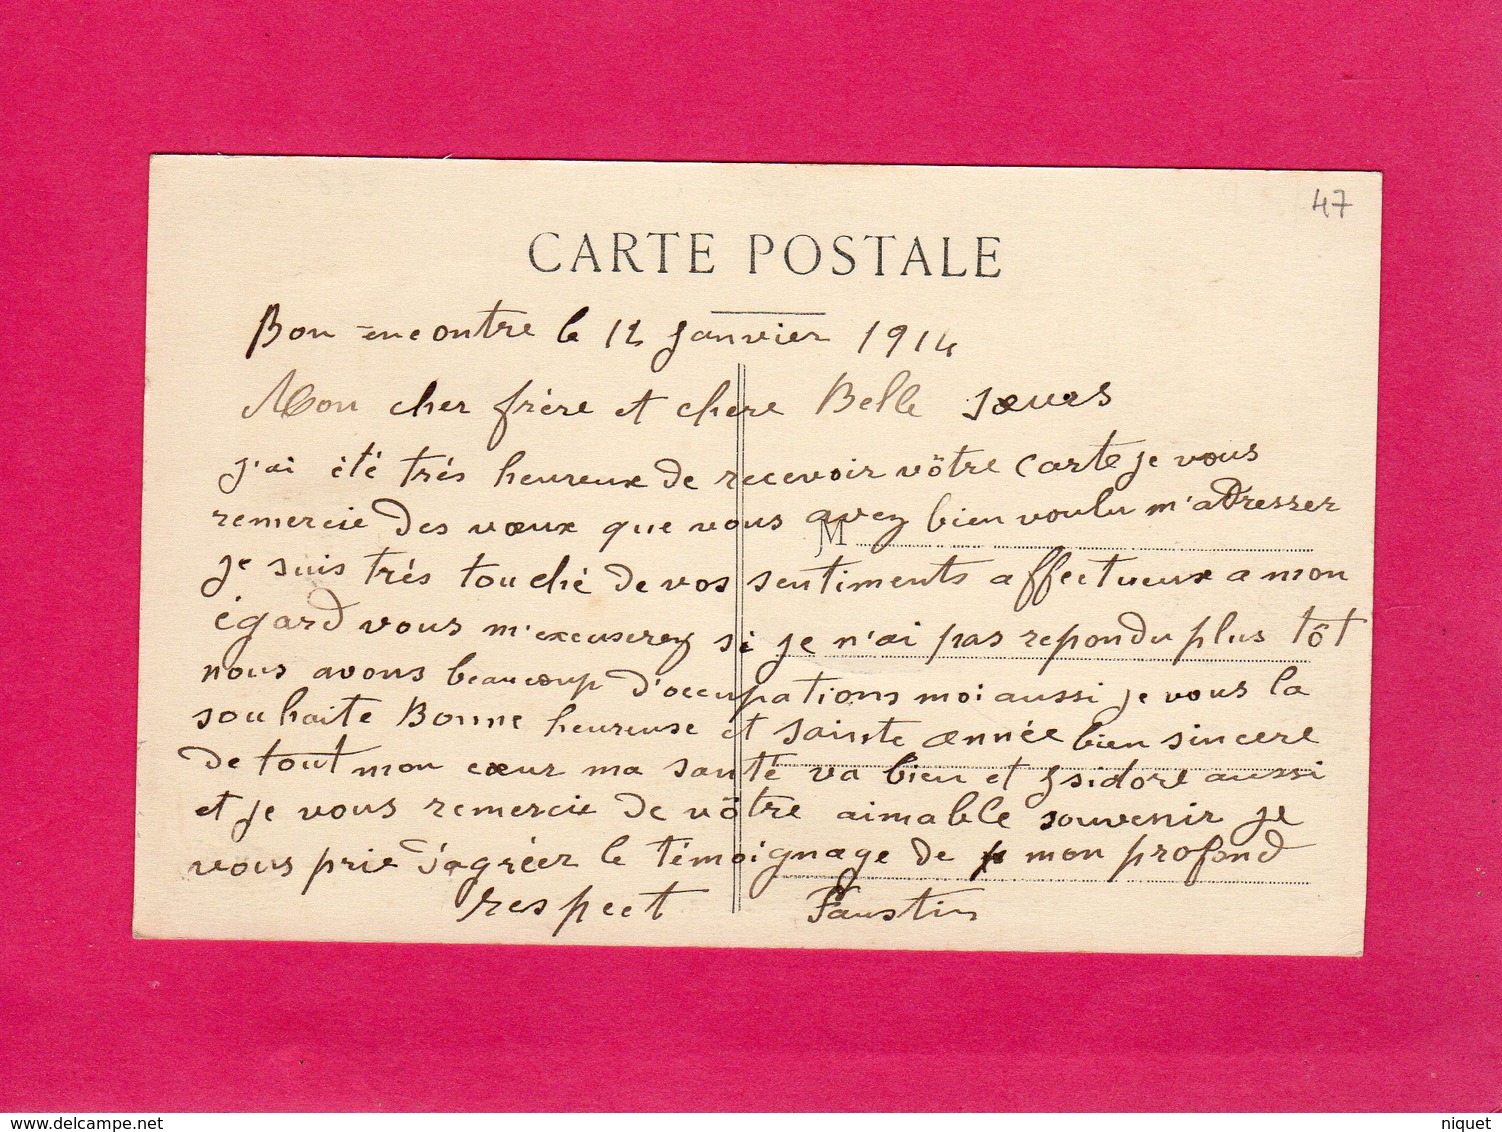 47
CARTE POSTALE
Bon-encontre le 12 Janvier 1914
Mon cher frère et chère Belle sœurs
J'ai été très heureux de recevoir vôtre carte je vous
remercie des vœux que vous avez bien voulu m'adresser
M
je suis très touché de vos sentiments affectueux a mon
égard vous m'excuserez si je n'ai pas repondu plus tôt
nous avons beaucoup d'occupations moi aussi je vous la
souhaite Bonne heureuse et sainte année bien sincere
de tout mon cœur ma santé va bien et Isidore aussi
et je vous remercie de vôtre aimable souvenir je
vous prie d'agréer le témoignage de mon profond
respect Faustin
niquet